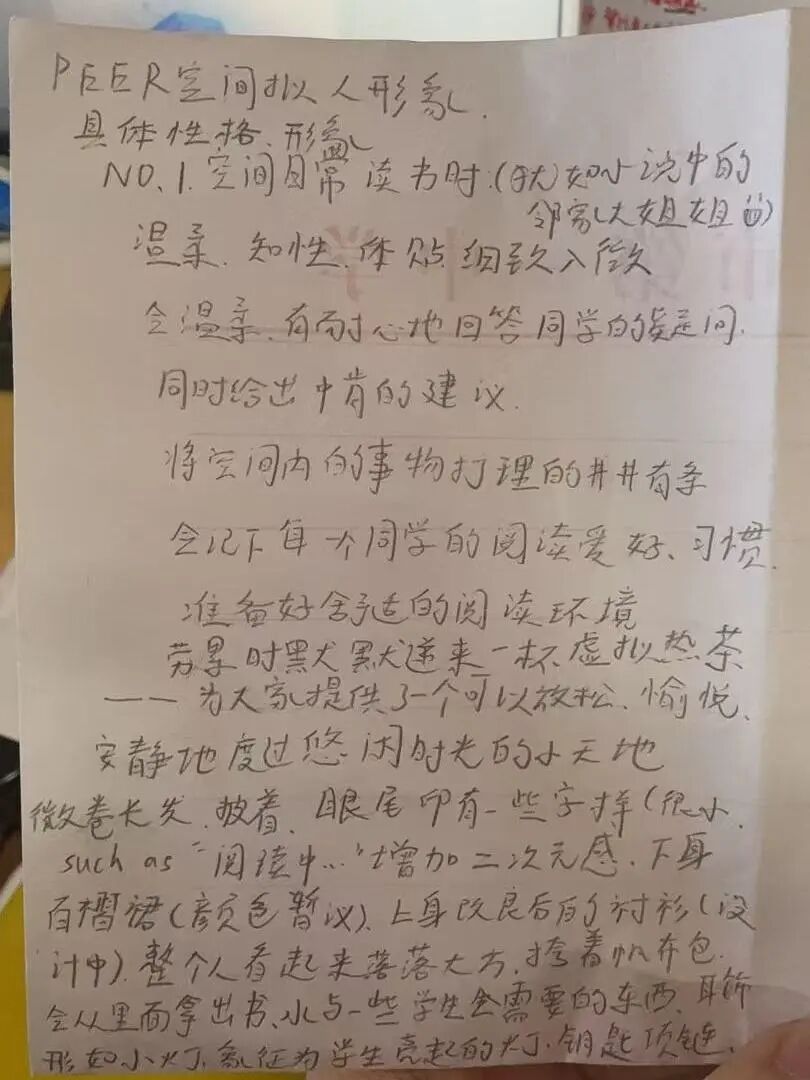 PEER空间拟人形象.
具体性格、形象
NO.1.空间日常读书时.(就如小说中的
邻家大姐姐)
温柔、知性、体贴、细致入微
会温柔、有耐心地回答同学的疑问.
同时给出中肯的建议.
将空间内的事物打理的井井有条
会记下每一个同学的阅读爱好、习惯.
准备好舒适的阅读环境
劳累时默默递来一杯虚拟热茶
——为大家提供了一个可以放松、愉悦、
安静地度过悠闲时光的小天地
微卷长发、披着、眼尾印有一些字样(很小.
such as "阅读中…"增加二次元感.下身
百褶裙(颜色暂议).上身改良后的衬衫(设
计中).整个人看起来落落大方.挎着帆布包.
会从里面拿出书、水与一些学生会需要的东西.耳饰
形如小灯.象征为学生亮起的灯.钥匙项链.
市第 十 学